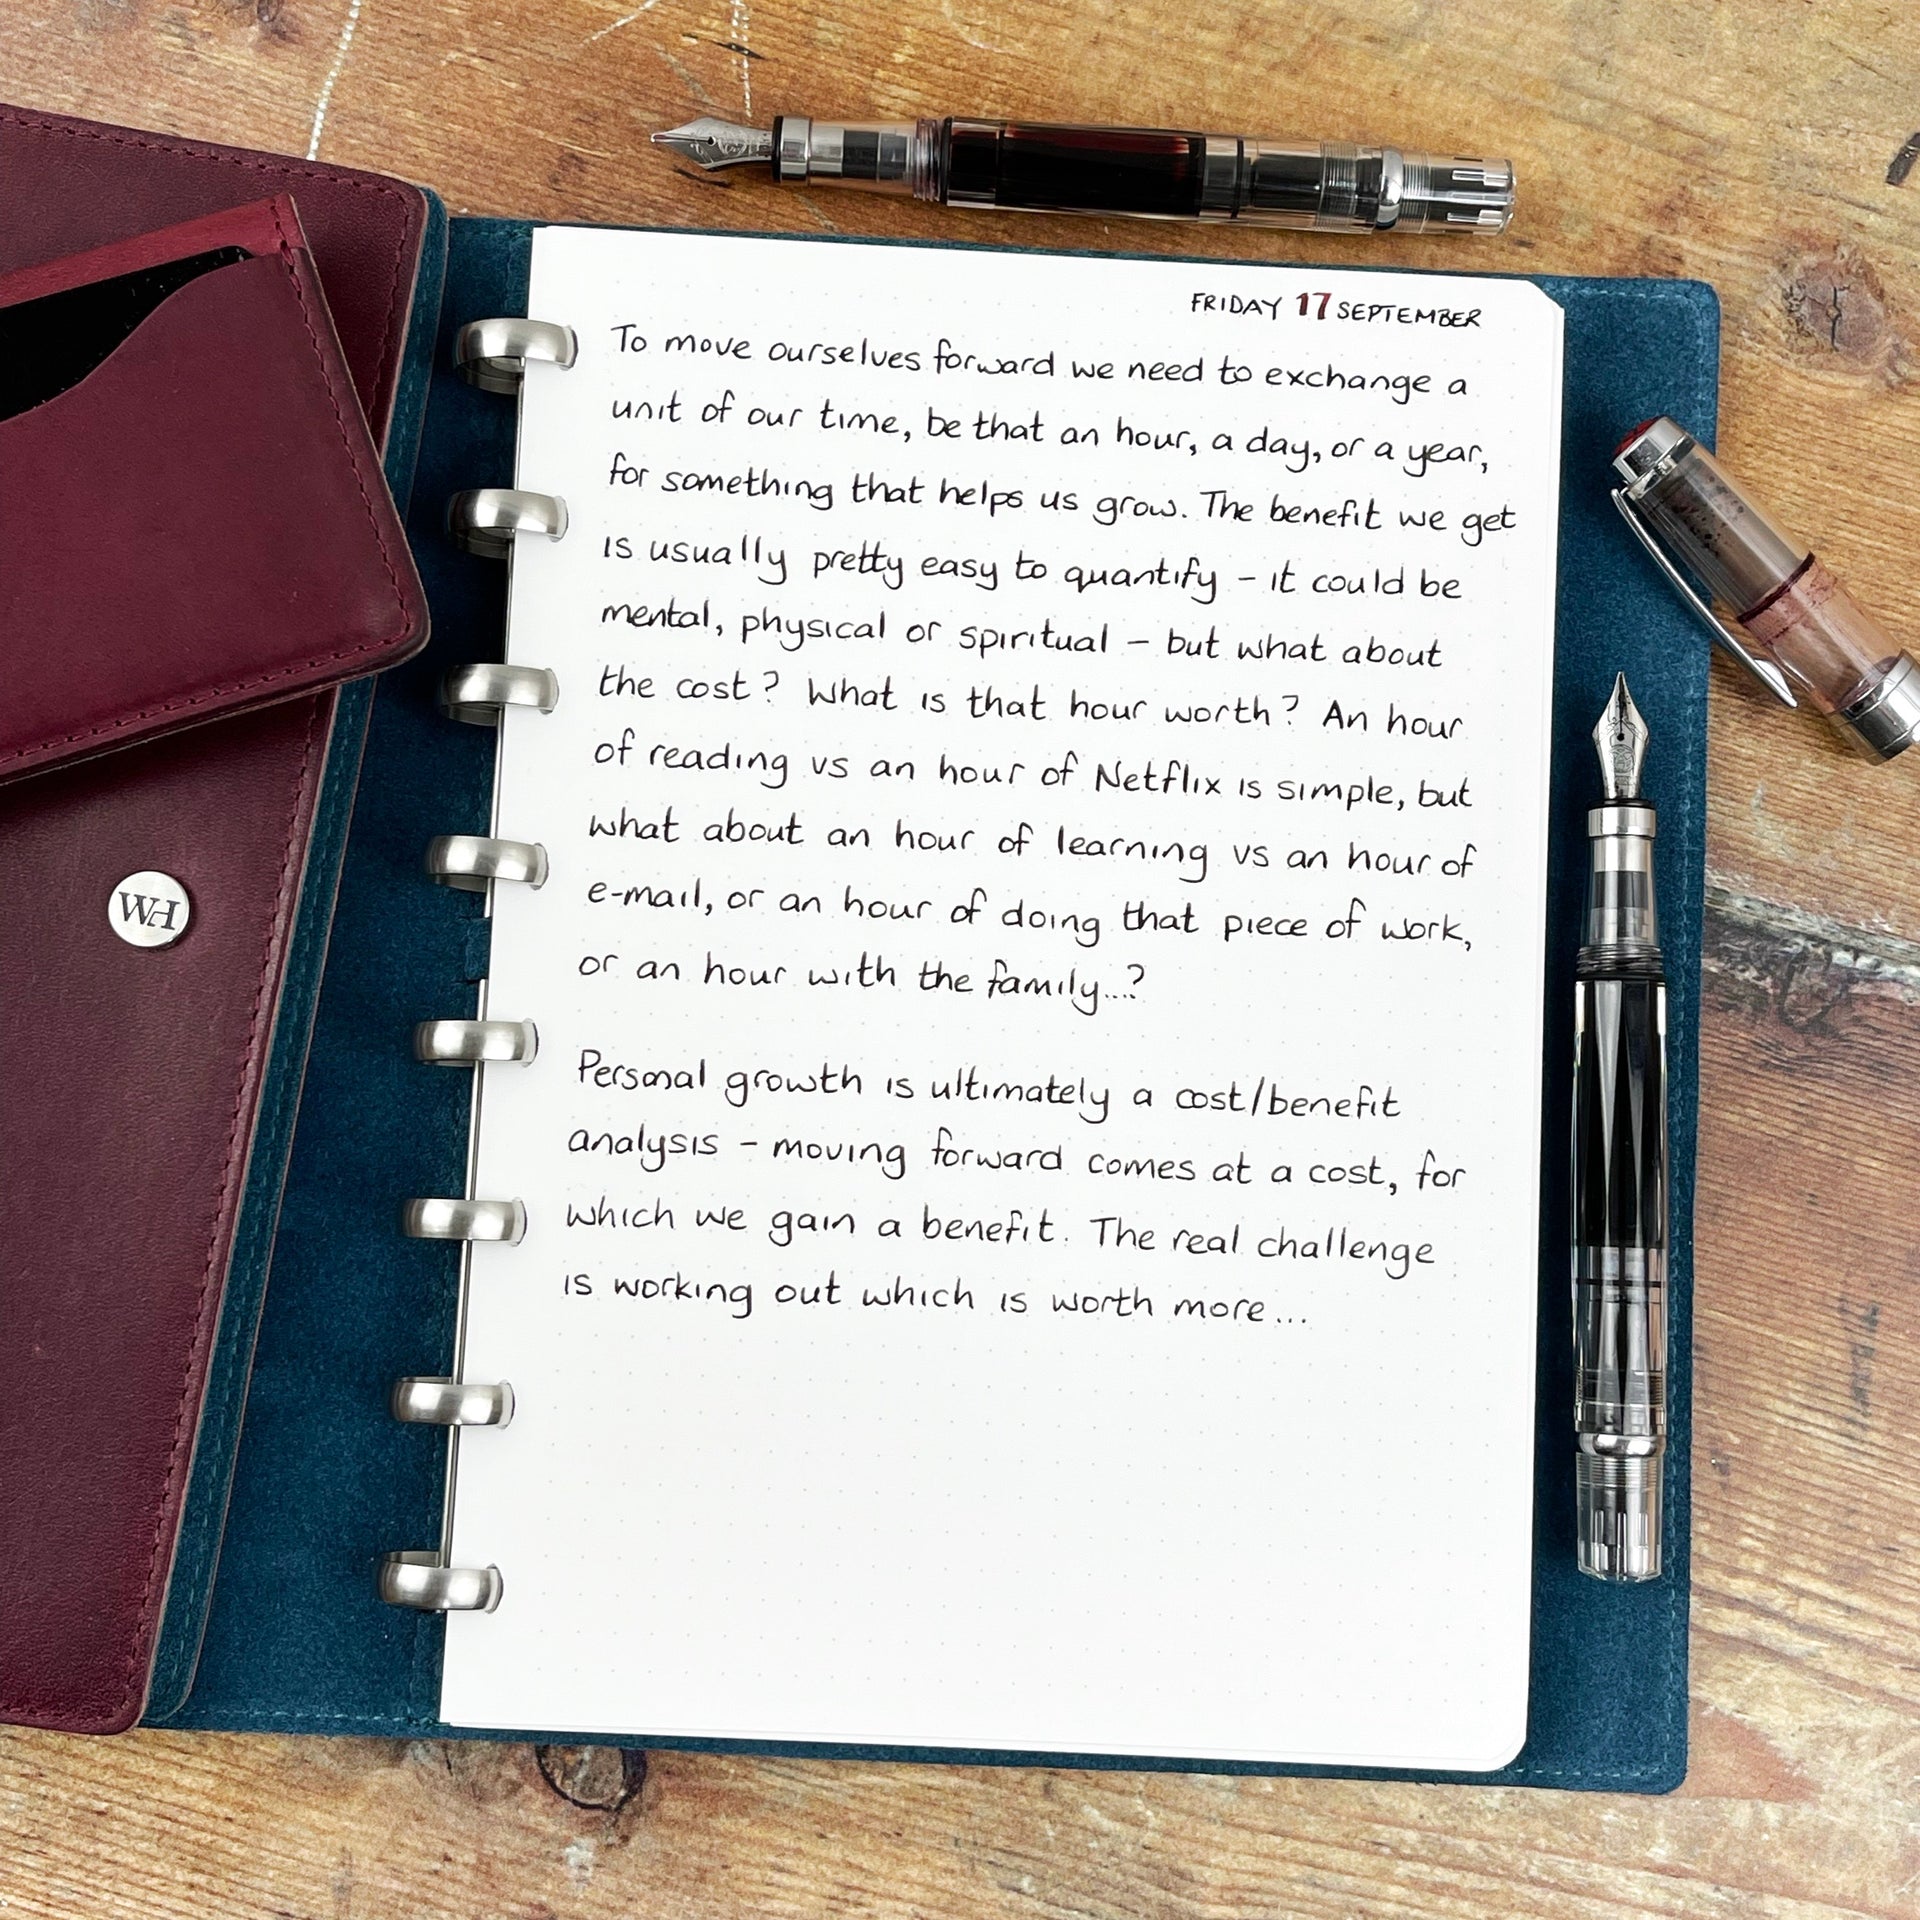 FRIDAY 17 SEPTEMBER
To move ourselves forward we need to exchange a
unit of our time, be that an hour, a day, or a year,
for something that helps us grow. The benefit we get
is usually pretty easy to quantify - it could be
mental, physical or spiritual - but what about
the cost? What is that hour worth? An hour
of reading vs an hour of Netflix is simple, but
what about an hour of learning vs an hour of
e-mail, or an hour of doing that piece of work,
or an hour with the family...?
Personal growth is ultimately a cost/benefit
analysis - moving forward comes at a cost, for
which we gain a benefit. The real challenge
is working out which is worth more...
WH